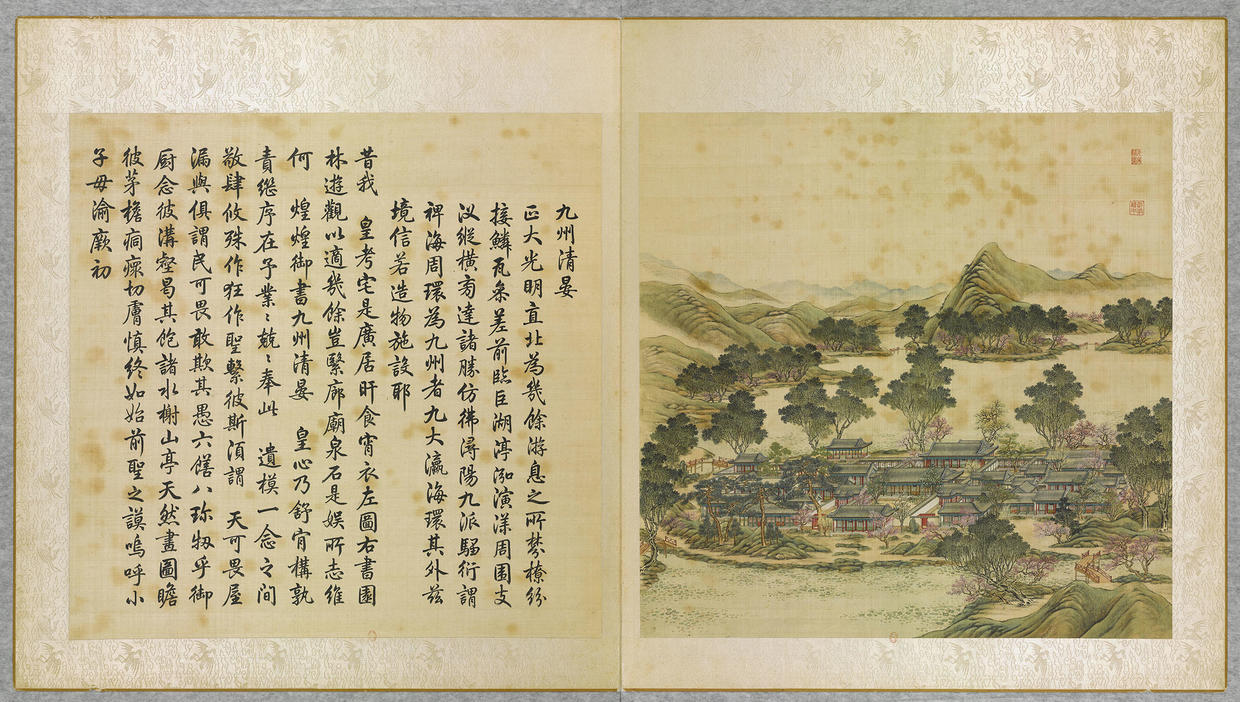 九州清晏
正大光明直北為幾餘游息之所棼橑紛
接鱗瓦參差前臨巨湖渟泓演漾周圍支
汊縱橫旁達諸勝仿彿潯陽九派騶衍謂
裨海周環為九州者九大瀛海環其外茲
境信若造物施設耶
昔我 皇考宅是廣居旰食宵衣左圖右書園
林遊觀以適幾餘豈繄廊廟泉石是娛所志維
何 煌煌御書九州清晏 皇心乃舒肯構孰
責繼序在予業〻兢〻奉此 遺模一念之間
敬肆攸殊作狂作聖繫彼斯須謂 天可畏屋
漏與俱謂民可畏敢欺其愚六饍八珍牣乎御
厨念彼溝壑曷其飽諸水榭山亭天然畫圖瞻
彼茅檐痌瘝切膚慎終如始前聖之謨嗚呼小
子毋渝厥初